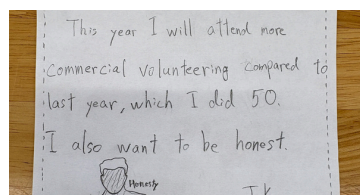 This year I will attend more
commercial volunteering compared to
last year, which I did 50.
I also want to be honest.
Honesty